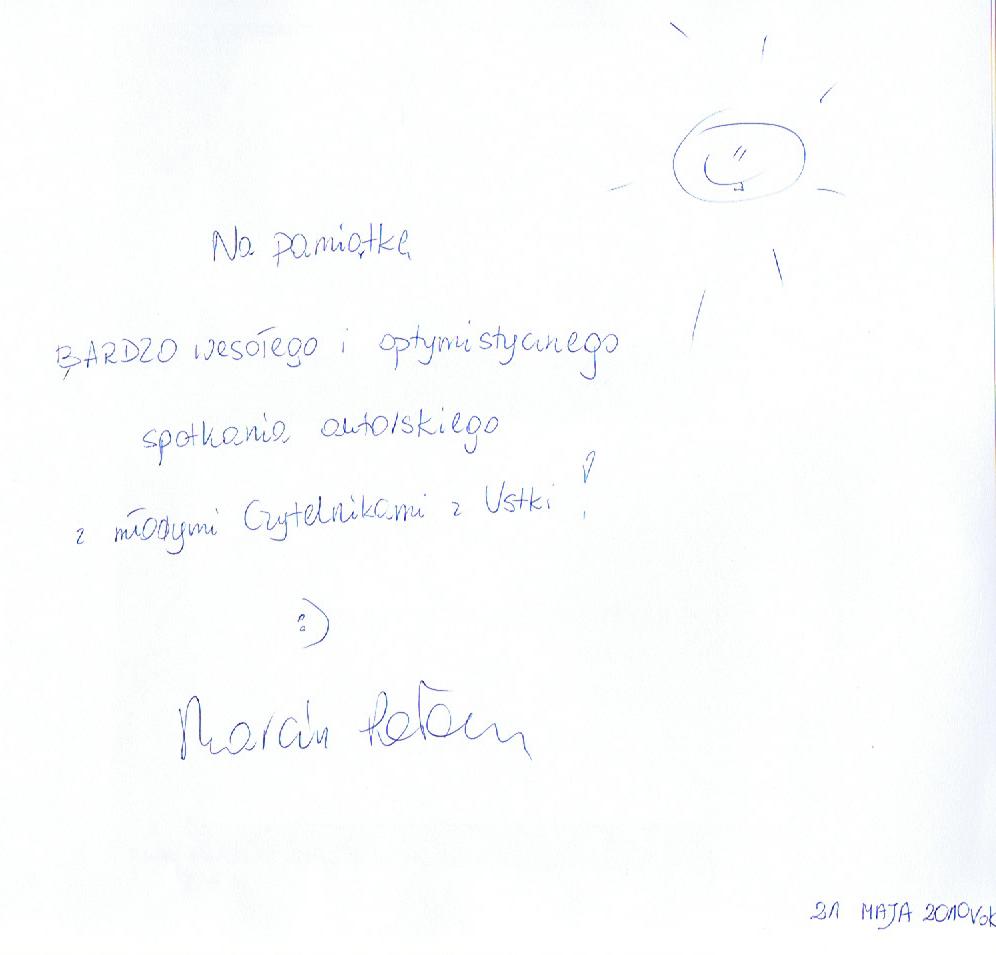 Na pamiątkę
BARDZO wesołego i optymistycznego
spotkania autorskiego
z młodymi Czytelnikami z Ustki!
:)
Marcin Pałasz
21 MAJA 2010 rok